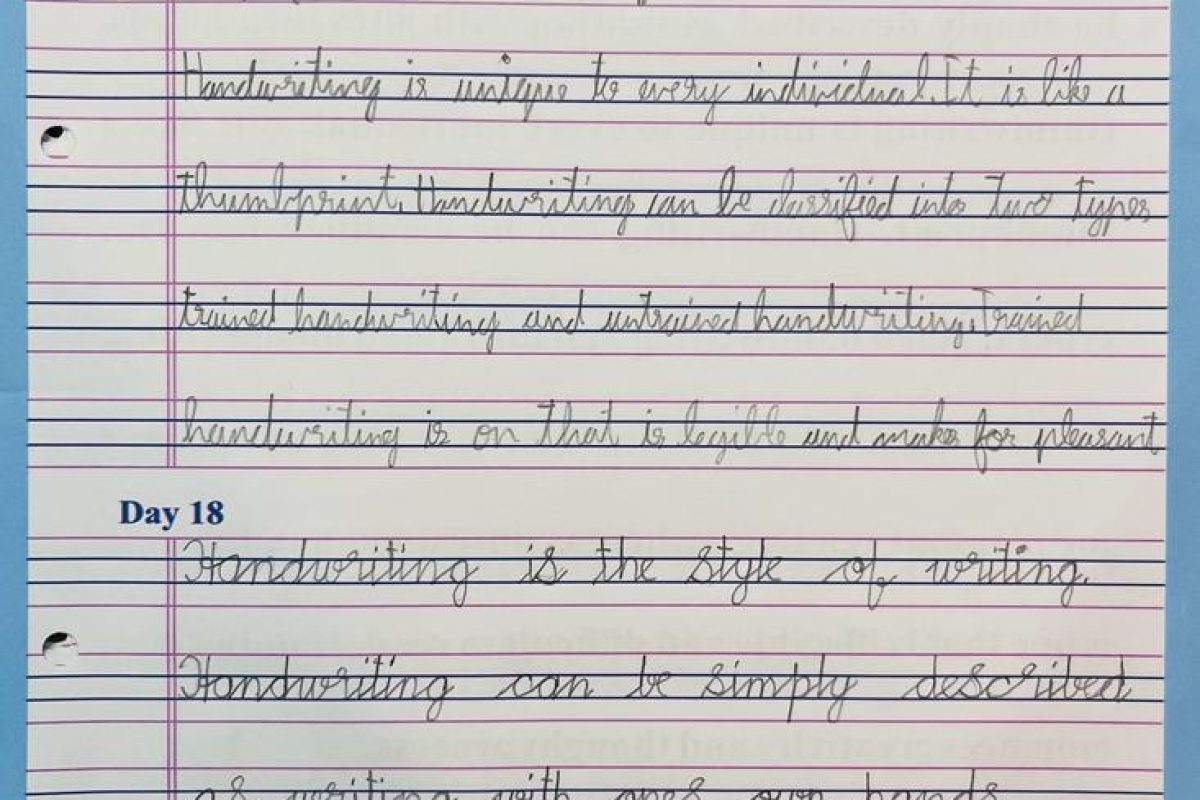 Handwriting is unique to every individual. It is like a
thumbprint. Handwriting can be classified into two types
trained handwriting and untrained handwriting. Trained
handwriting is on that is legible and makes for pleasant
Day 18
Handwriting is the style of writing.
Handwriting can be simply described
as writing with ones own hands